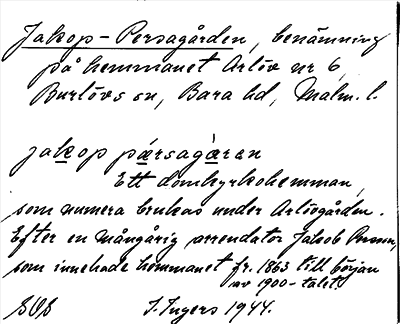 Jakop-Persagården, benämning
på hemmanet Arlöv nr 6,
Burlövs sn, Bara hd, Malm. l.
jakop pärsagåren
Ett domkyrkohemman,
som numera brukas under Arlövgården.
Efter en mångårig arrendator Jakob Persson,
som innehade hemmanet fr. 1863 till början
av 1900-talet.
SOS I. Ingers 1944.